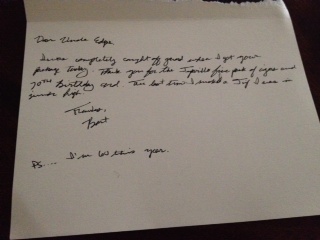 Dear Uncle Edge
I was completely caught off guard when I got your
package today. Thank you for the free pack of cigars and
70th Birthday card. The last time I smoked a I was a
Thanks,
Bart
PS.... I'm 60 this year.